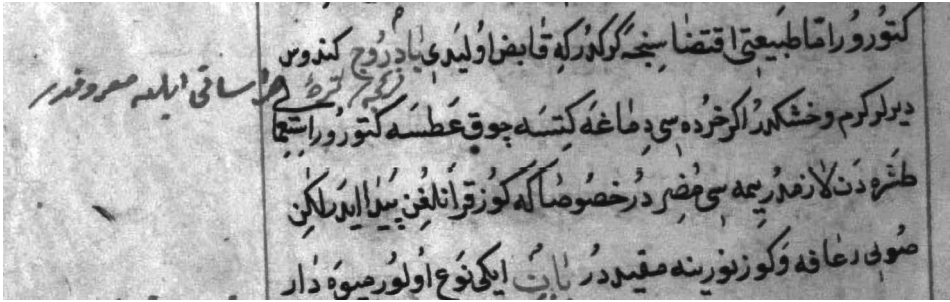 كتورور اما طبيعتى اقتضاسنجه كركدر كه قابض اوليدى بادروج كندوس
ديرلر كرم وخشكدر اكر خرده سى دماغه كتسه چوق عطسه كتورور استعما
طشره دن لازمدر يمه سى مضر در خصوصا كه كوز قرانلغن پيدا ايدر لكن
صويى رعافه و كوز نورينه مفيد در بان ايكى نوع اولور ميوه دار
ساقى ايله معروفدر